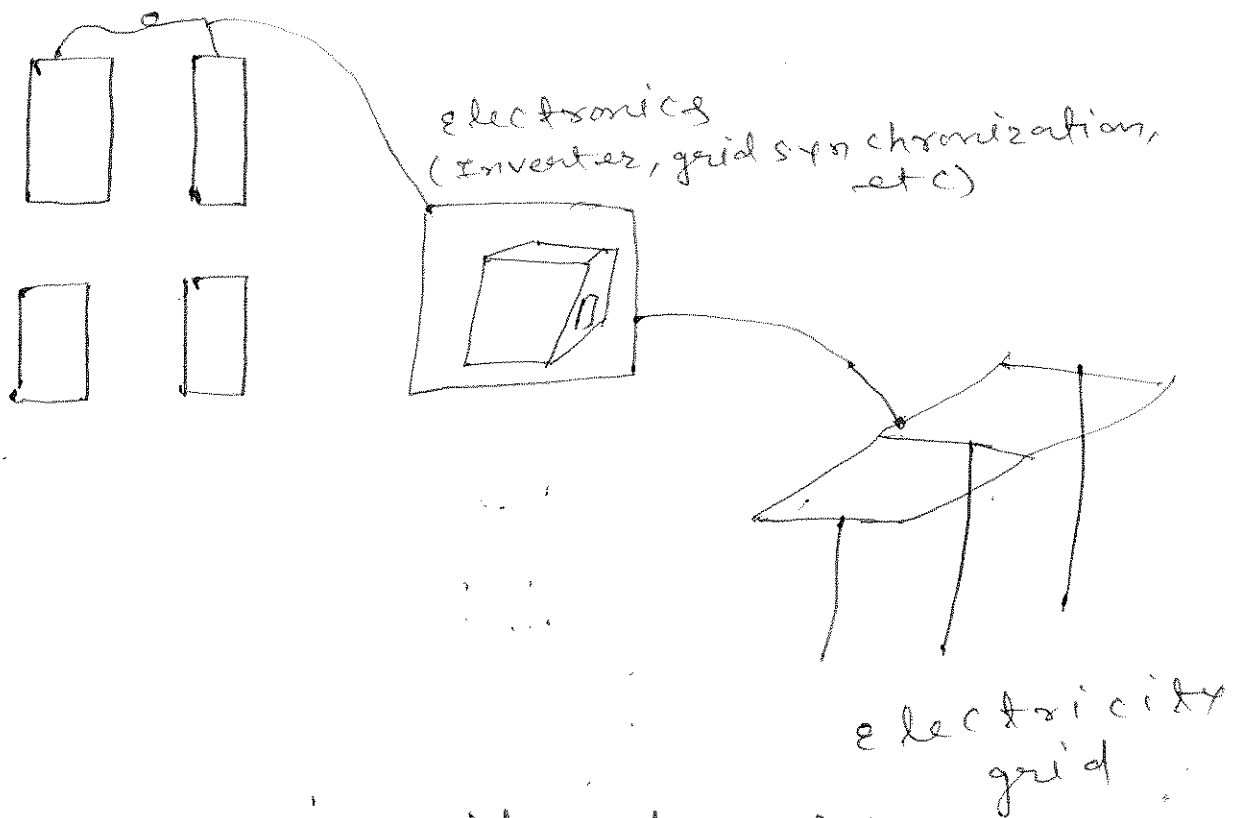 electronics
(Inverter, grid synchronization,
etc)
electricity
grid